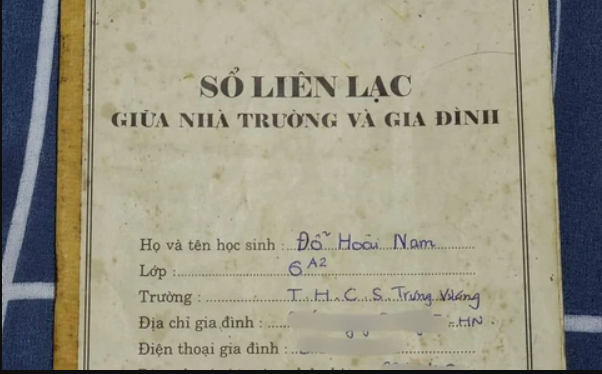 SỔ LIÊN LẠC
GIỮA NHÀ TRƯỜNG VÀ GIA ĐÌNH
Họ và tên học sinh : Đỗ Hoài Nam
Lớp : 6A2
Trường : T.H.C.S. Trưng Vương
Địa chỉ gia đình : HN
Điện thoại gia đình :